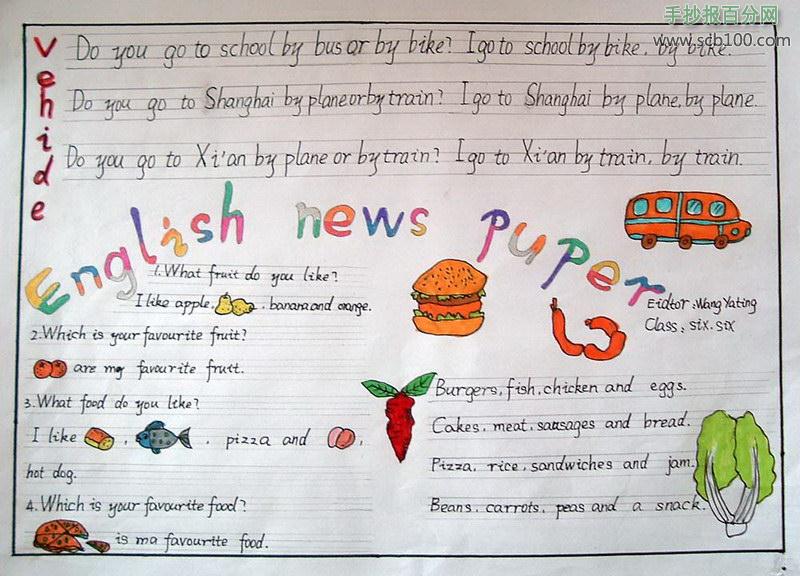 手抄报百分网
www.scb100.com
Vehide
Do you go to school by bus or by bike? I go to school by bike, by bike.
Do you go to Shanghai by plane or by train? I go to Shanghai by plane, by plane.
Do you go to Xi'an by plane or by train? I go to Xi'an by train, by train.
English news puper
1.What fruit do you like?
I like apple, , banana and orange.
Eidtor:Wang Yating
Class: six.six
2.Which is your favourite fruit?
are my favourite fruit.
3.What food do you like?
I like , , pizza and ,
hot dog.
4.Which is your favourite food?
is ma favourite food.
Burgers, fish, chicken and eggs.
Cakes, meat, sausages and bread.
Pizza, rice, sandwiches and jam.
Beans, carrots, peas and a snack.